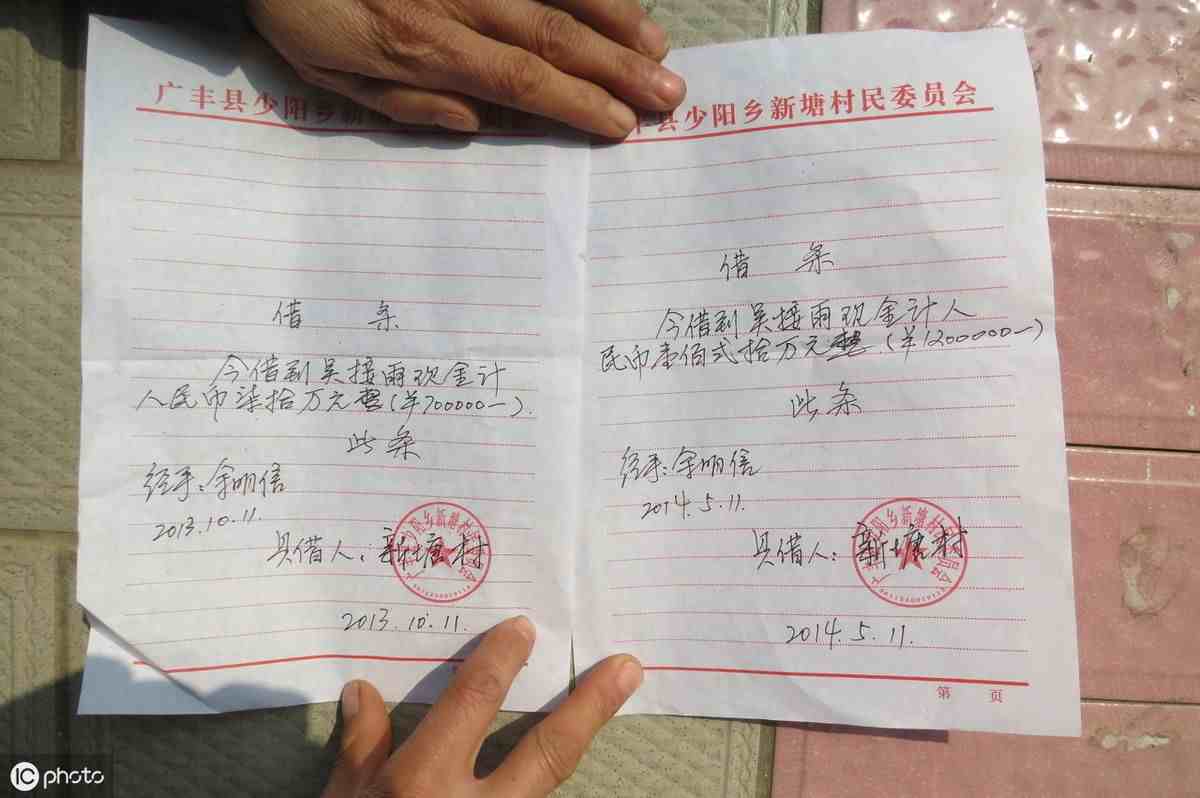 广丰县少阳乡新
借 条
今借到吴接雨现金计
人民币柒拾万元整(¥700000一).
此条
经手:余明信
2013.10.11.
具借人:新塘村
2013.10.11.
丰县少阳乡新塘村民委员会
借 条
今借到吴接雨现金计人
民币壹佰弍拾万元整(¥1200000一)
此条
经手:余明信
2014.5.11.
具借人:新塘村
2014.5.11.
第 页
IC photo